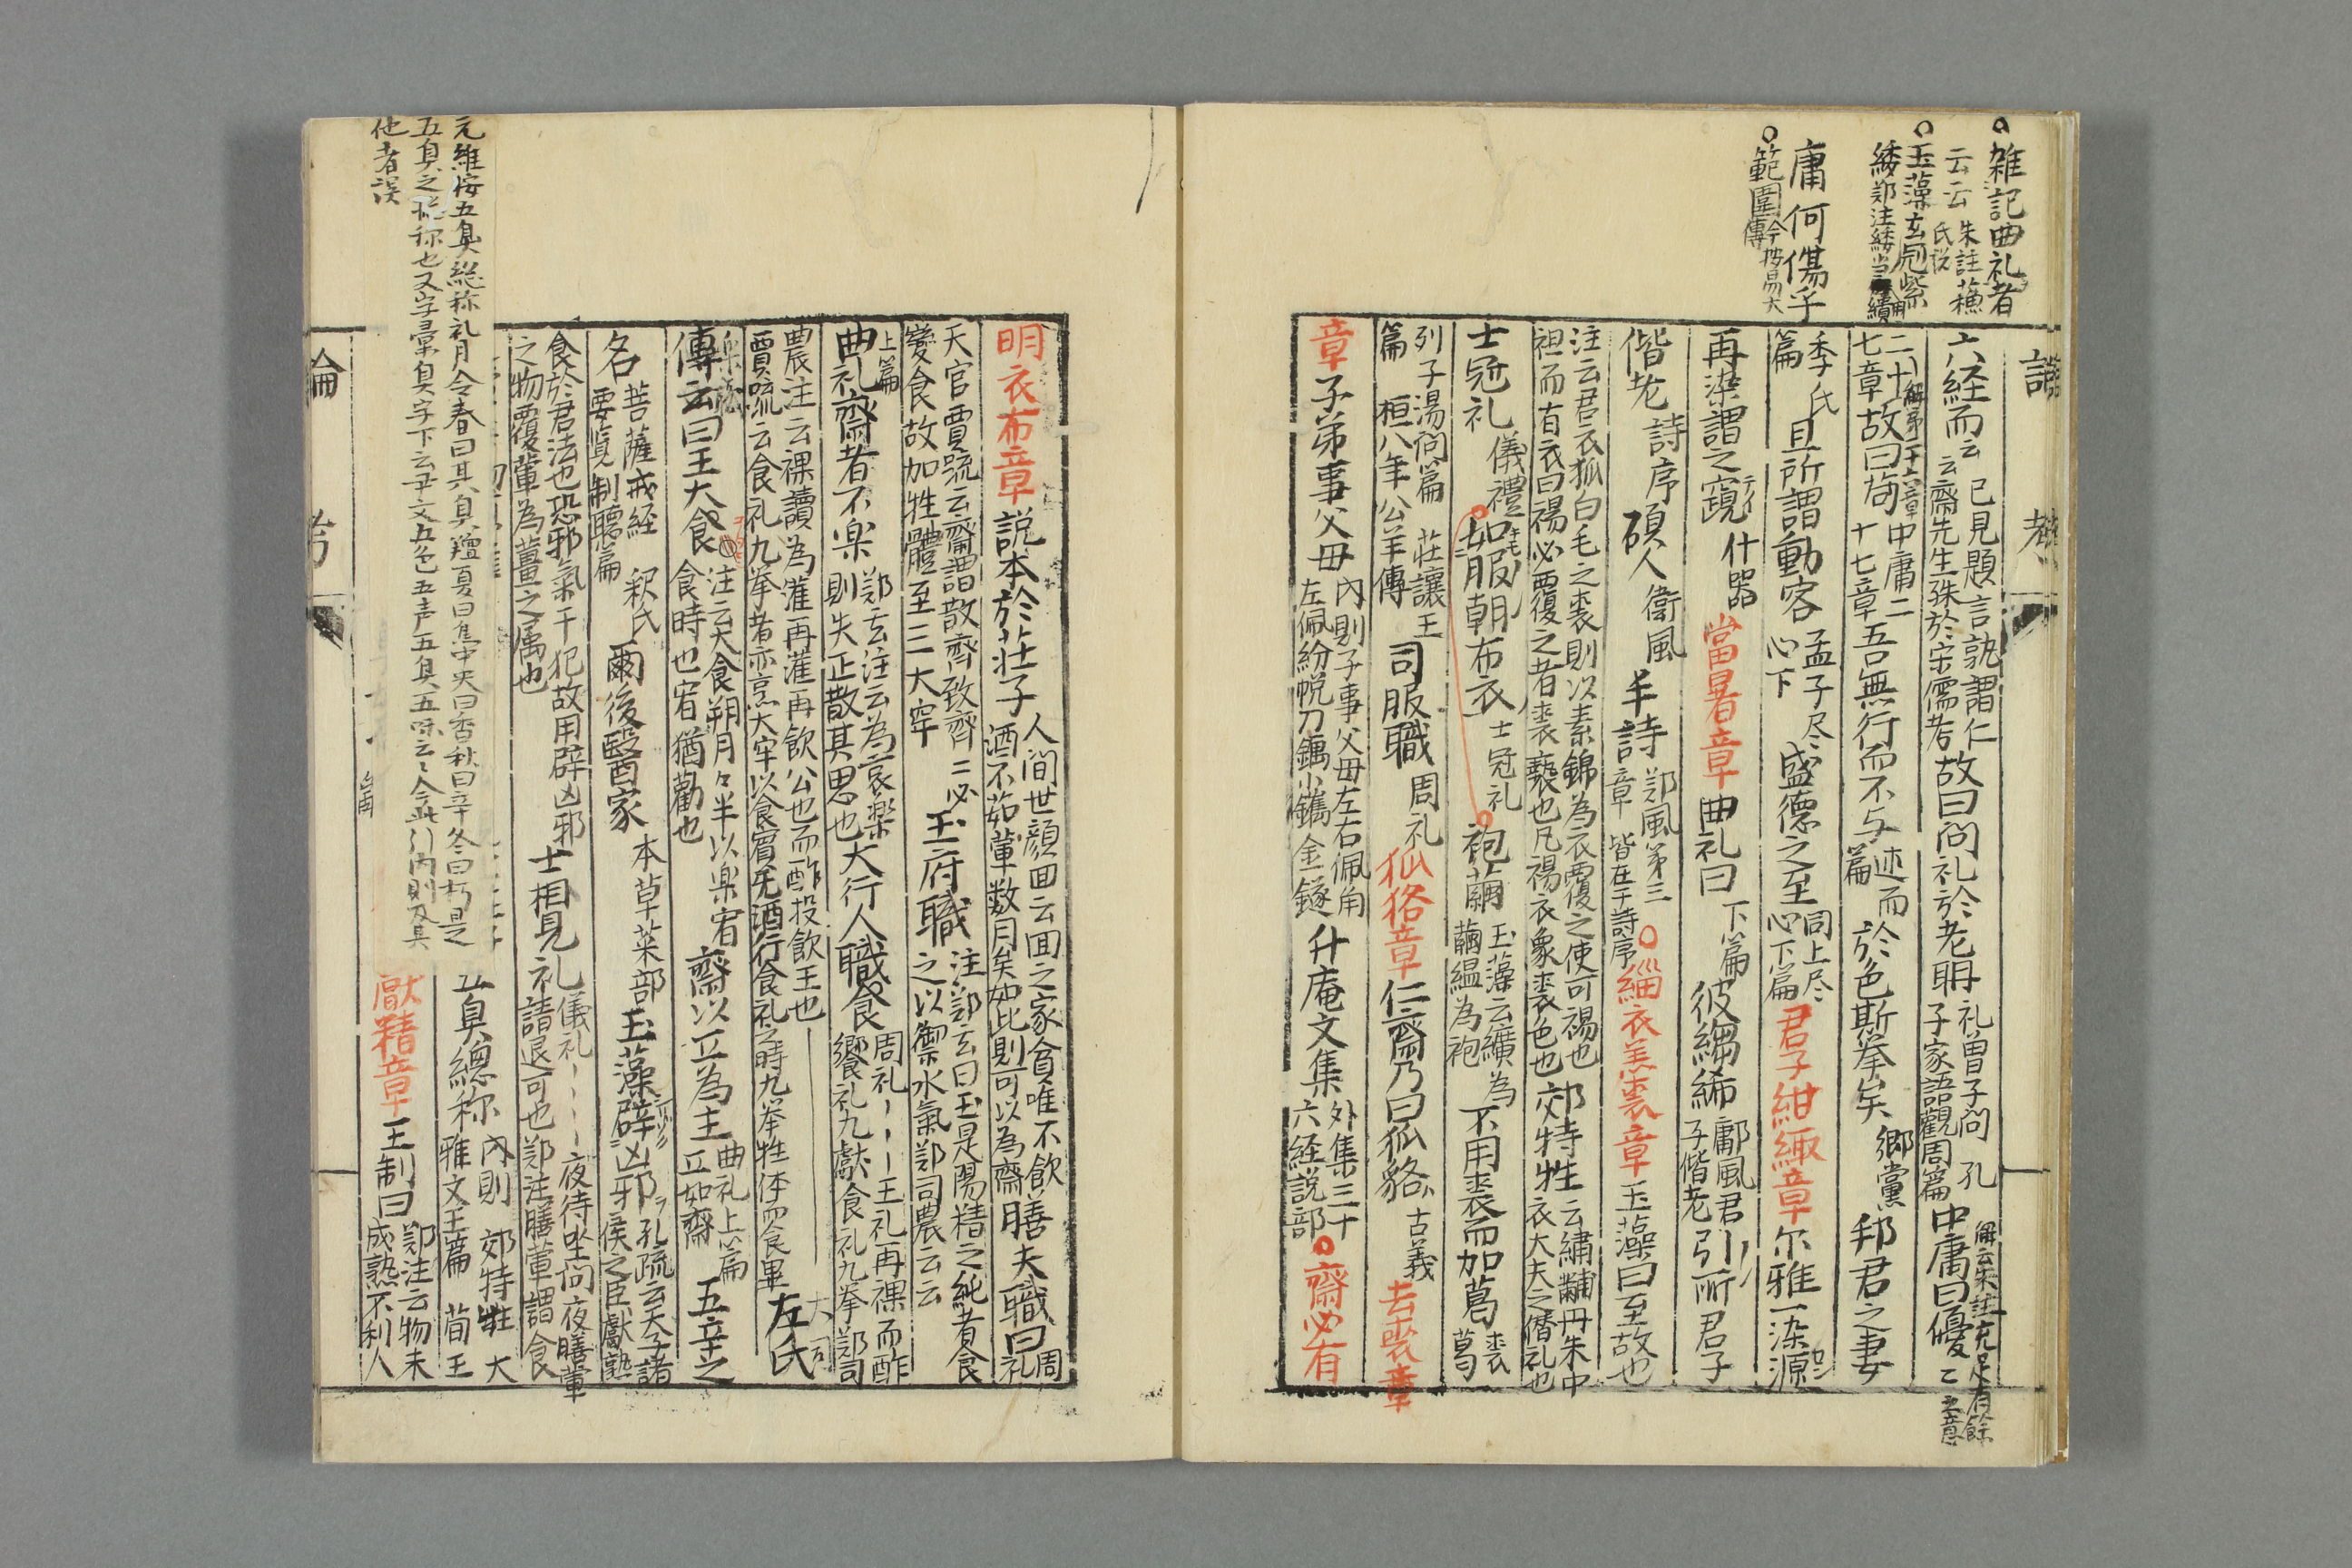 雑記曲礼者
云云
朱註蘓
氏説
玉藻玄冠紫
緌鄭注緌当用繢
庸何傷乎
範圍今按易大
傳
六経而云 已見題言孰謂仁
云齋先生殊於宋儒者 故曰问礼於老聃 礼曽子问 孔
子家語觀周篇 中庸曰優 解云朱註充足有餘
之意
二十解第二十六章
七章 故曰苟 中庸二
十七章 吾無行而不与 述而
篇 於色斯挙矣 鄉黨 邦君之妻
季氏
篇 且所謂動容 孟子尽
心下 盛徳之至 同上尽
心下篇 君子紺緅章 尔雅一染源
再染謂之竀 什器 當暑章 曲礼曰 下篇 彼縐絺 鄘風君
子偕老 引所君子
偕老 詩序 碩人 衛風 手詩 鄭風第三
章 皆在于詩序 緇衣羔裘章 玉藻曰至故也
注云君衣狐白毛之裘則以素錦為衣覆之使可裼也
袒而有衣曰裼必覆之者裘褻也凡裼衣象裘色也 郊特牲 云繡黼丹朱中
衣大夫之僭礼也
士冠礼 儀禮 如服朝布衣 士冠礼 袍繭 玉藻云纊為
繭緼為袍 不用裘而加葛 裘
葛
列子湯问篇 莊讓王
篇 桓八年公羊傳 司服職 周礼 狐狢章 仁齋乃曰狐貉 古義 去喪章
章 子弟事父母 內則子事父母左右佩角
左佩紛帨刀鐫小鐫金鐩 升庵文集 外集三十
六経説部 齋必有
明衣布章 説本於荘子 人间世顔回云回之家貧唯不飲
酒不茹葷数月矣如此則可以為齋 膳夫職曰 周
礼
天官賈疏云齋謂散齊致齊 必
變食故加牲體至三大牢 玉府職 注鄭云曰玉是陽精之純者食
之以御水氣鄭司農云云
上篇
曲礼齋者不楽 鄭云注云為哀楽
則失正散其思也 大行人職食 周礼 王礼再祼而酢
饗礼九獻食礼九挙鄭司
農注云祼讀為灌再灌再飲公也而酢投飲王也
賈疏云食礼九挙者亦烹大牢以食賓无酒行食礼之時九挙牲体而食畢 左氏
傳云曰王大食 注云大食朔月々半以楽宥
食時也宥猶勸也 齋以立為主 曲礼上篇
立如齋 五辛之
名 菩薩戒経 釈氏
要覧制聴篇 爾後醫家 本草菜部 玉藻辟凶邪 孔疏云天子諸
侯之臣獻熟
食於君法也恐邪氣干犯故用辟凶邪
之物覆葷為薑之属也 士相見礼 儀礼 夜侍坐问夜膳葷
請退可也鄭注膳葷謂食
五臭總称 內則 郊特牲 大
雅文王篇 荀 王
獻精章 王制曰 鄭注云物未
成熟不利人
元維按五臭総称礼月令春曰其臭羶夏曰焦中央曰香秋曰辛冬曰朽是
五臭之総称也又字彙臭字下云尹文五色五声五臭五味云々今並引内則及其
他者誤